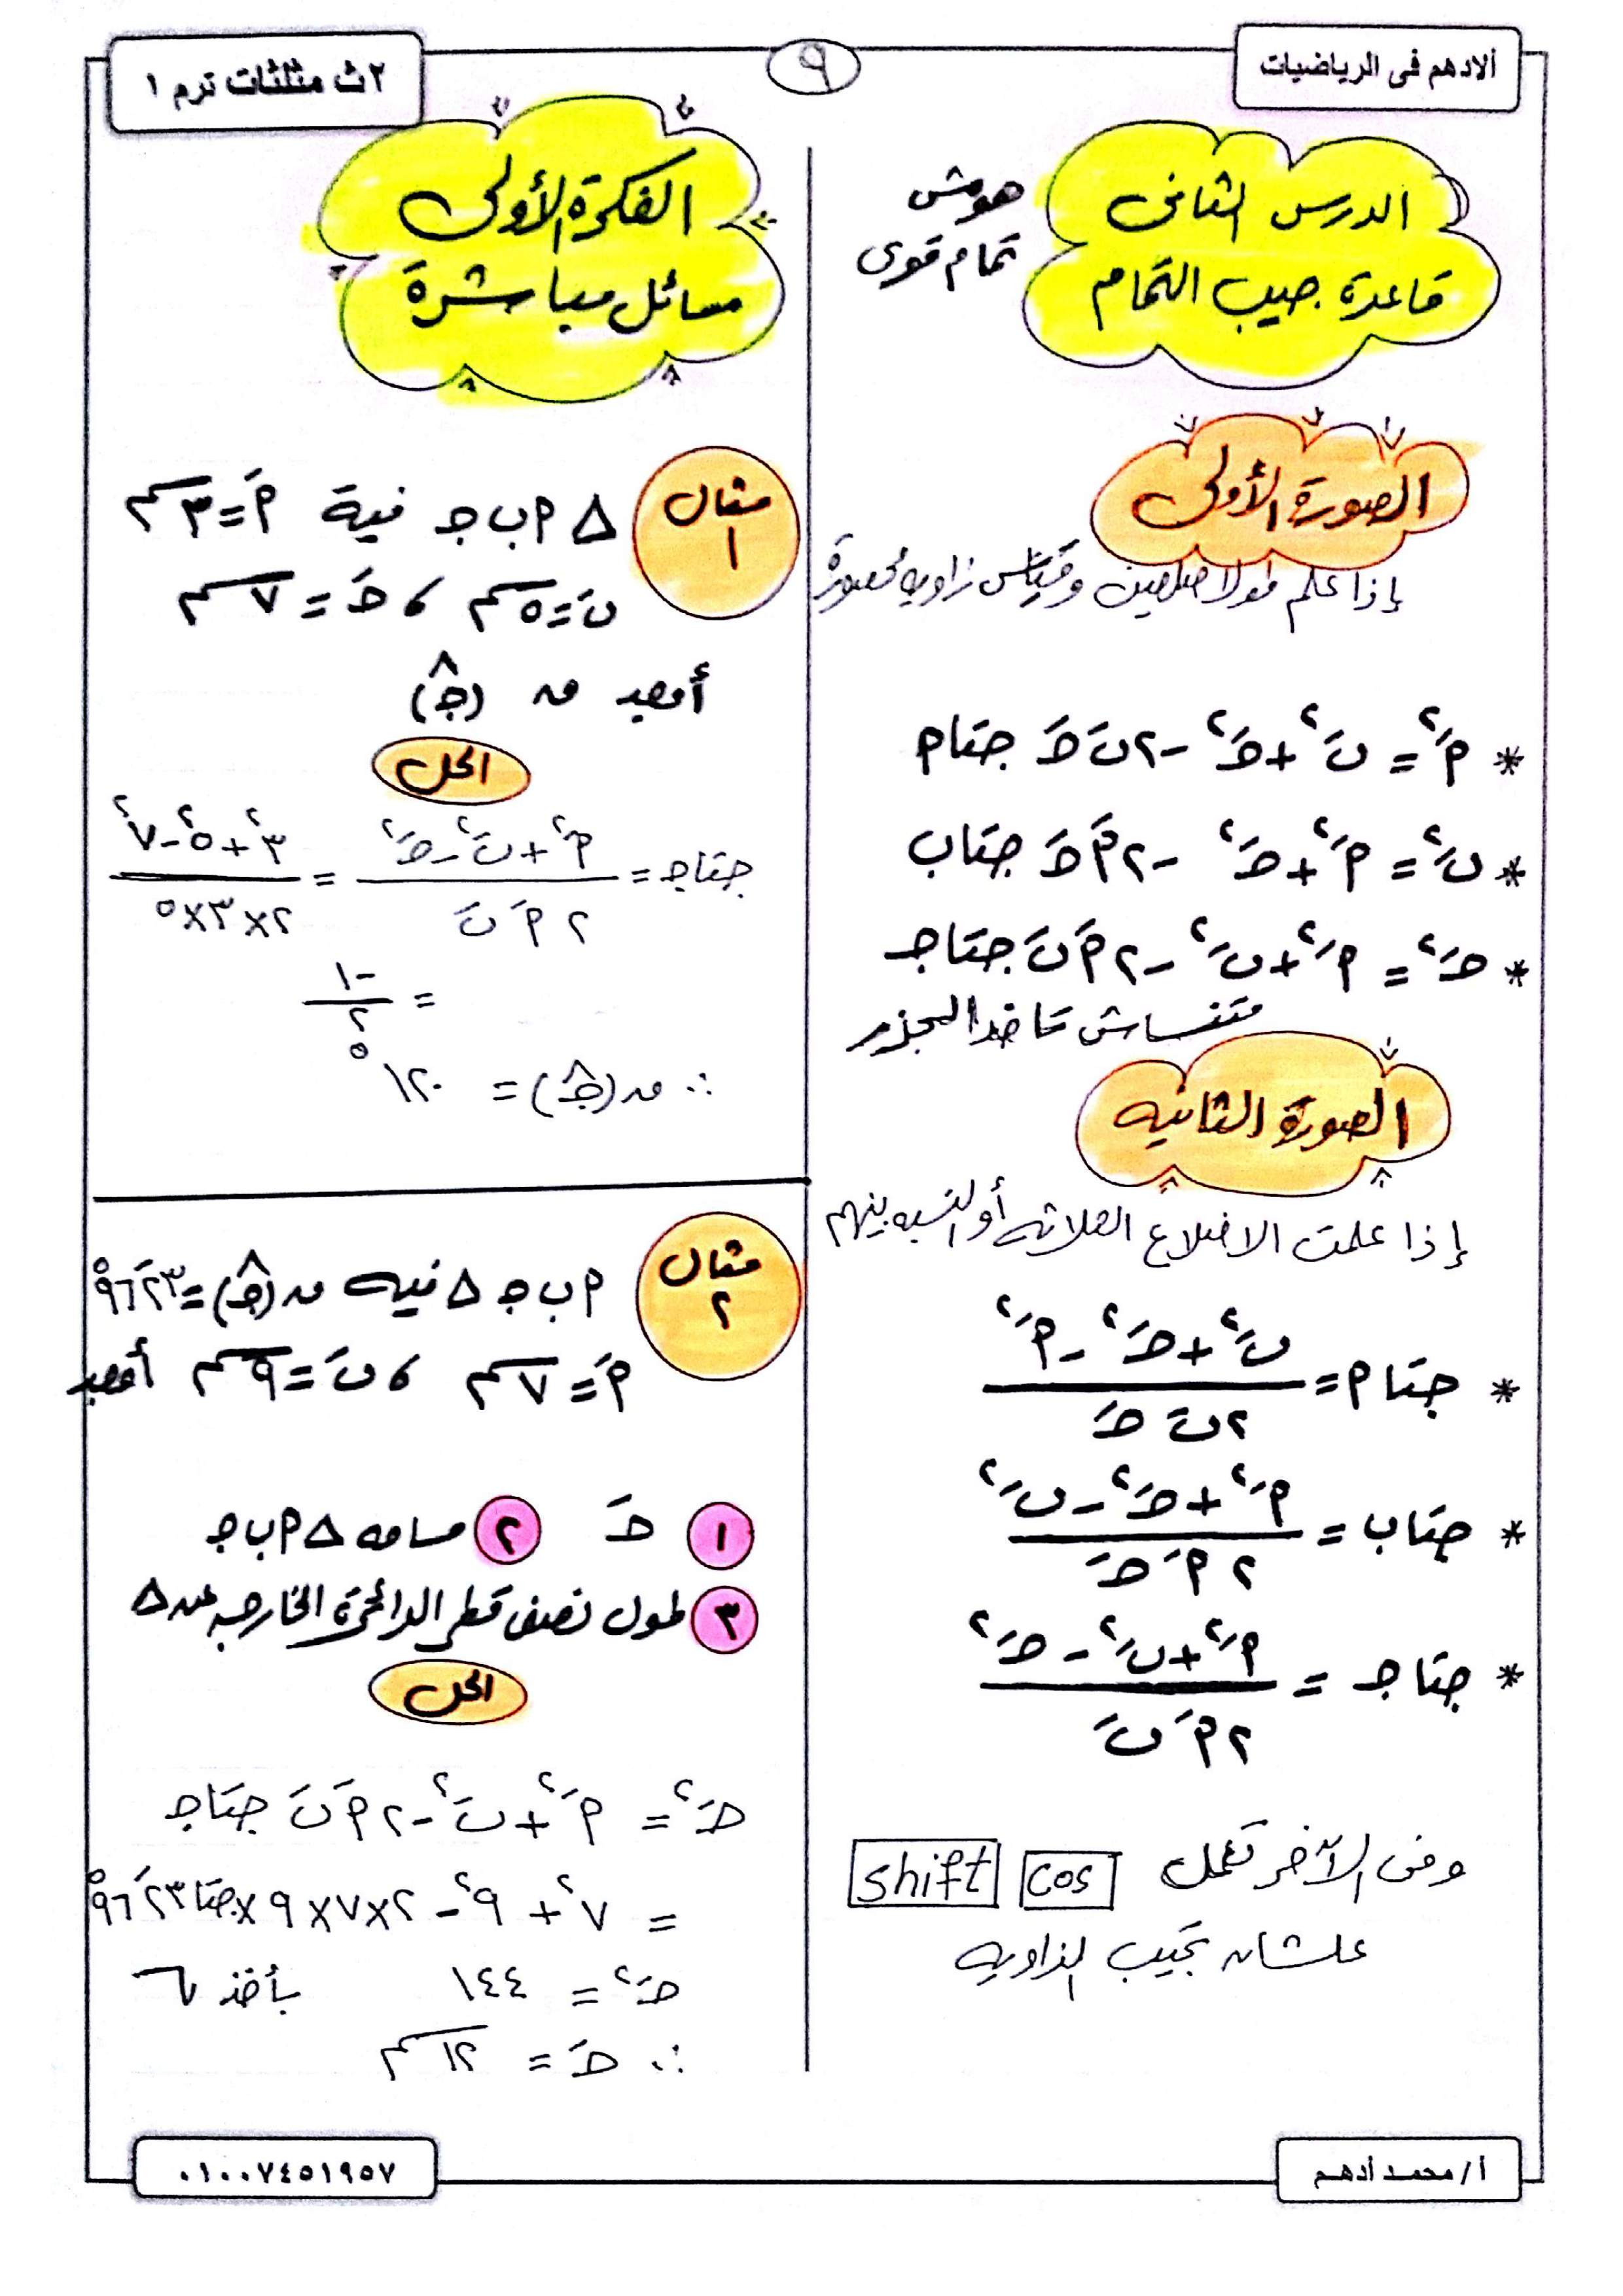 ألادهم فى الرياضيات
٩
٢ث مثلثات ترم ١
الدرس الثانى
قاعدة جيب التمام
هومش
تمام قوى
الصورة الأولى
إذا علم طولا ضلعين وقياس زاويه محصورة
* أَ² = بَ² + جَ² - ٢ بَ جَ جتا أ
* بَ² = أَ² + جَ² - ٢ أَ جَ جتا ب
* جَ² = أَ² + بَ² - ٢ أَ بَ جتا جـ
متنساش تاخد الجذر
الصورة الثانيه
إذا علمت الاضلاع الثلاثه أو النسبه بينهم
* جتا أ = (بَ² + جَ² - أَ²) / (٢ بَ جَ)
* جتا ب = (أَ² + جَ² - بَ²) / (٢ أَ جَ)
* جتا جـ = (أَ² + بَ² - جَ²) / (٢ أَ بَ)
وفى الآخر تعمل cos shift
علشان تجيب الزاويه
الفكرة الأولى
مسائل مباشرة
مثال ١
△ أ ب جـ فية أَ = ٣سم
بَ = ٥سم ، جَ = ٧سم
أوجد ق (جـ^)
الحل
جتا جـ = (أَ² + بَ² - جَ²) / (٢ أَ بَ) = (٣² + ٥² - ٧²) / (٢×٣×٥)
= -١ / ٢
∴ ق (جـ^) = ١٢٠°
مثال ٢
أ ب جـ △ فيه ق (جـ^) = ٢٣َ ٩٦°
أَ = ٧سم ، بَ = ٩سم أوجد
١ جَ ٢ مساحه △ أ ب جـ
٣ طول نصف قطر الدائرة الخارجيه عن △
الحل
جَ² = أَ² + بَ² - ٢ أَ بَ جتا جـ
= ٧² + ٩² - ٢×٧×٩×جتا ٢٣َ ٩٦°
جَ² = ١٤٤ بأخذ √
∴ جَ = ١٢سم
أ/ محمد أدهم
٠١٠٠٧٤٥١٩٥٧